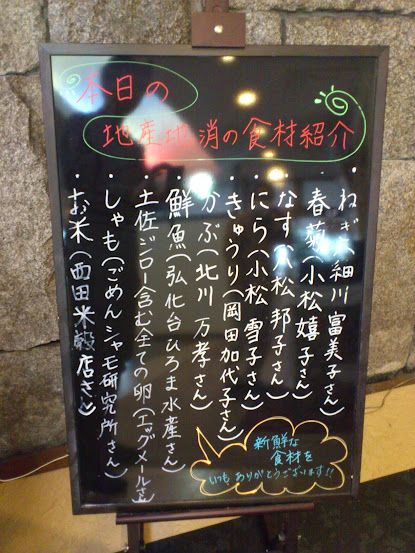 本日の
地産地消の食材紹介
・ねぎ(細川 富美子さん)
・春菊(小松 嬉子さん)
・なす(小松 邦子さん)
・にら(小松 雪子さん)
・きゅうり(岡田加代子さん)
・かぶ(北川 万孝さん)
・鮮魚(弘化台ひろま水産さん)
・土佐ジロー含む全ての卵(エッグメールさん)
・しゃも(ごめんシャモ研究所さん)
・お米(西田米穀店さん)
新鮮な
食材を
いつもありがとうございます!!